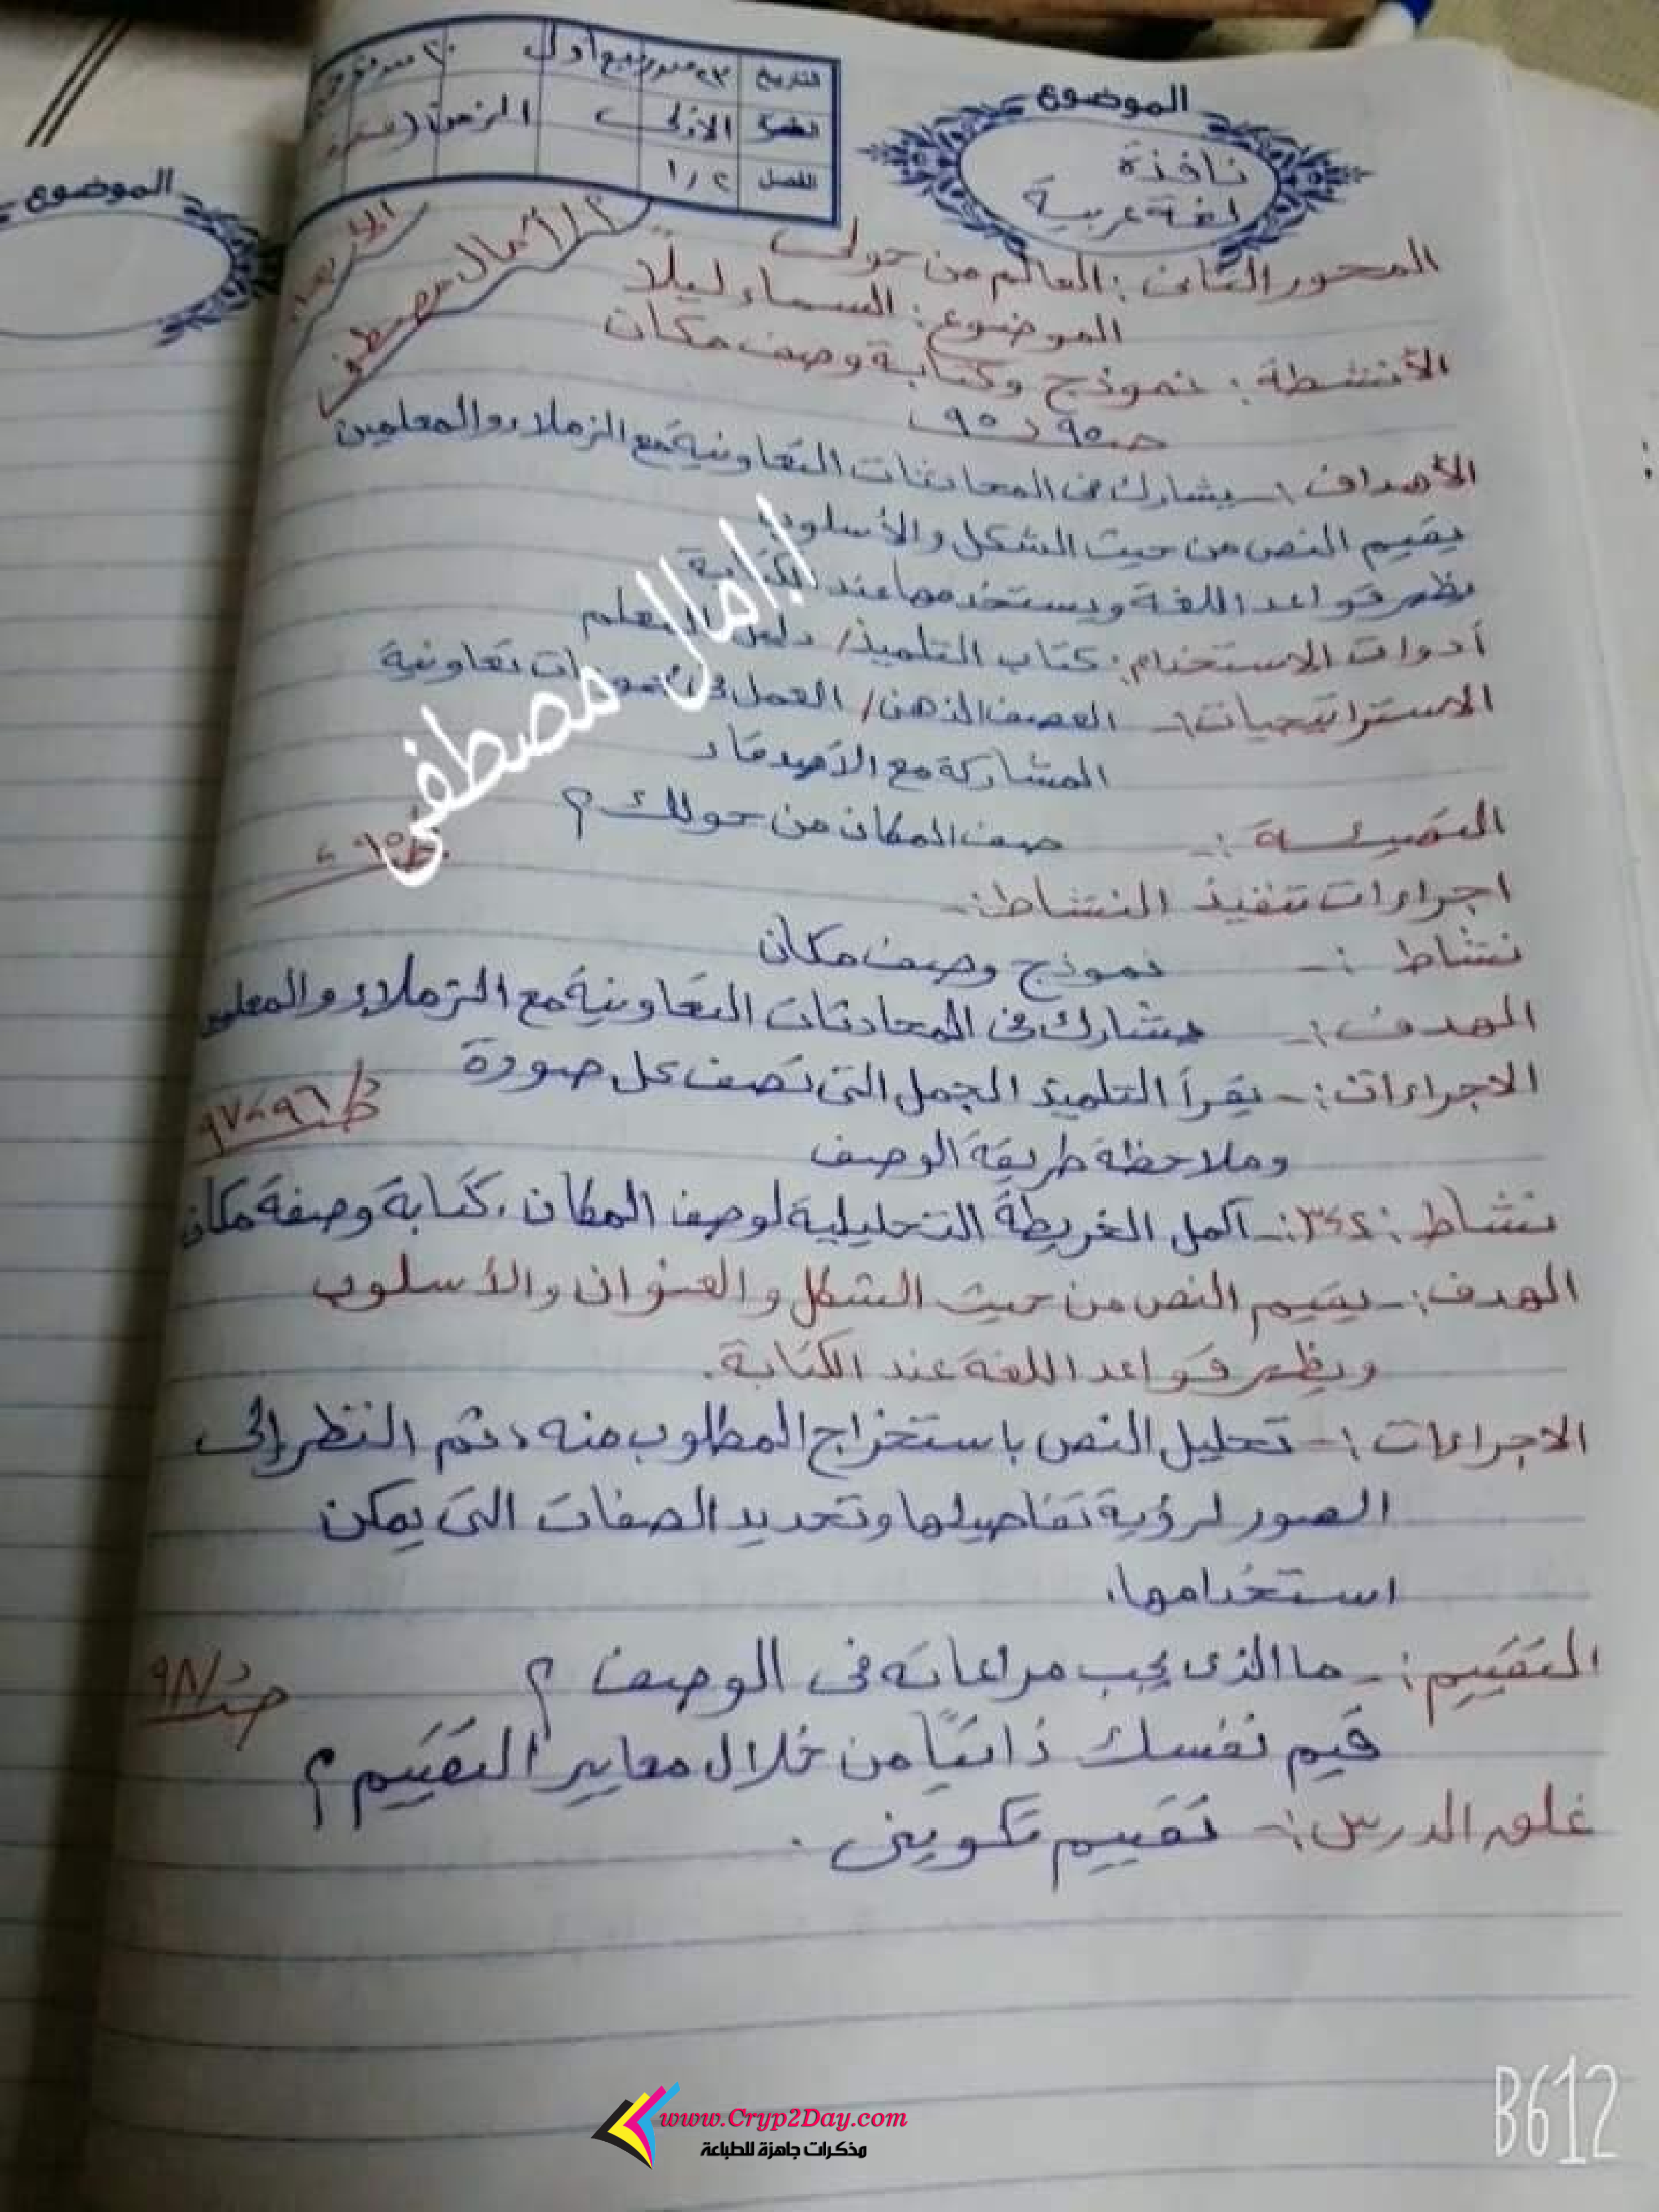 الموضوع
نافذة
لغة عربية
التاريخ ٢٣ من ربيع أول
الأولى الزمن
الفصل ١/٢
الموضوع
المحور الثانى : العالم من حولى
الموضوع : السماء ليلاً
الأنشطة : نموذج وكتابة وصف مكان
أ/ أمال مصطفى
الأهداف :- يشارك فى المحادثات التعاونية مع الزملاء والمعلمين
يقيم النص من حيث الشكل والأسلوب
يظهر قواعد اللغة ويستخدمها عند الكتابة
أدوات الاستخدام : كتاب التلميذ / دليل المعلم
الاستراتيجيات :- العصف الذهنى / العمل فى مجموعات تعاونية
المشاركة مع الأصدقاء
التهيئة :- صف المكان من حولك ؟
اجراءات تنفيذ النشاط :-
نشاط :- نموذج وصف مكان
الهدف :- يشارك فى المحادثات التعاونية مع الزملاء والمعلمين
الاجراءات :- يقرأ التلميذ الجمل التى تصف كل صورة
وملاحظة طريقة الوصف
نشاط : ٢، ٣ :- أكمل الخريطة التحليلية لوصف المكان ، كتابة وصفة مكان
الهدف :- يقيم النص من حيث الشكل والعنوان والأسلوب
ويظهر قواعد اللغة عند الكتابة .
الاجراءات :- تحليل النص باستخراج المطلوب منه ، ثم النظر إلى
الصور لرؤية تفاصيلها وتحديد الصفات التى يمكن
استخدامها .
التقييم :- ما الذى يجب مراعاته فى الوصف ؟
قيم نفسك ذاتيًا من خلال معايير التقييم ؟
غلق الدرس :- تقييم تكوينى .
أ/ امال مصطفى
www.Cryp2Day.com
مذكرات جاهزة للطباعة
B612